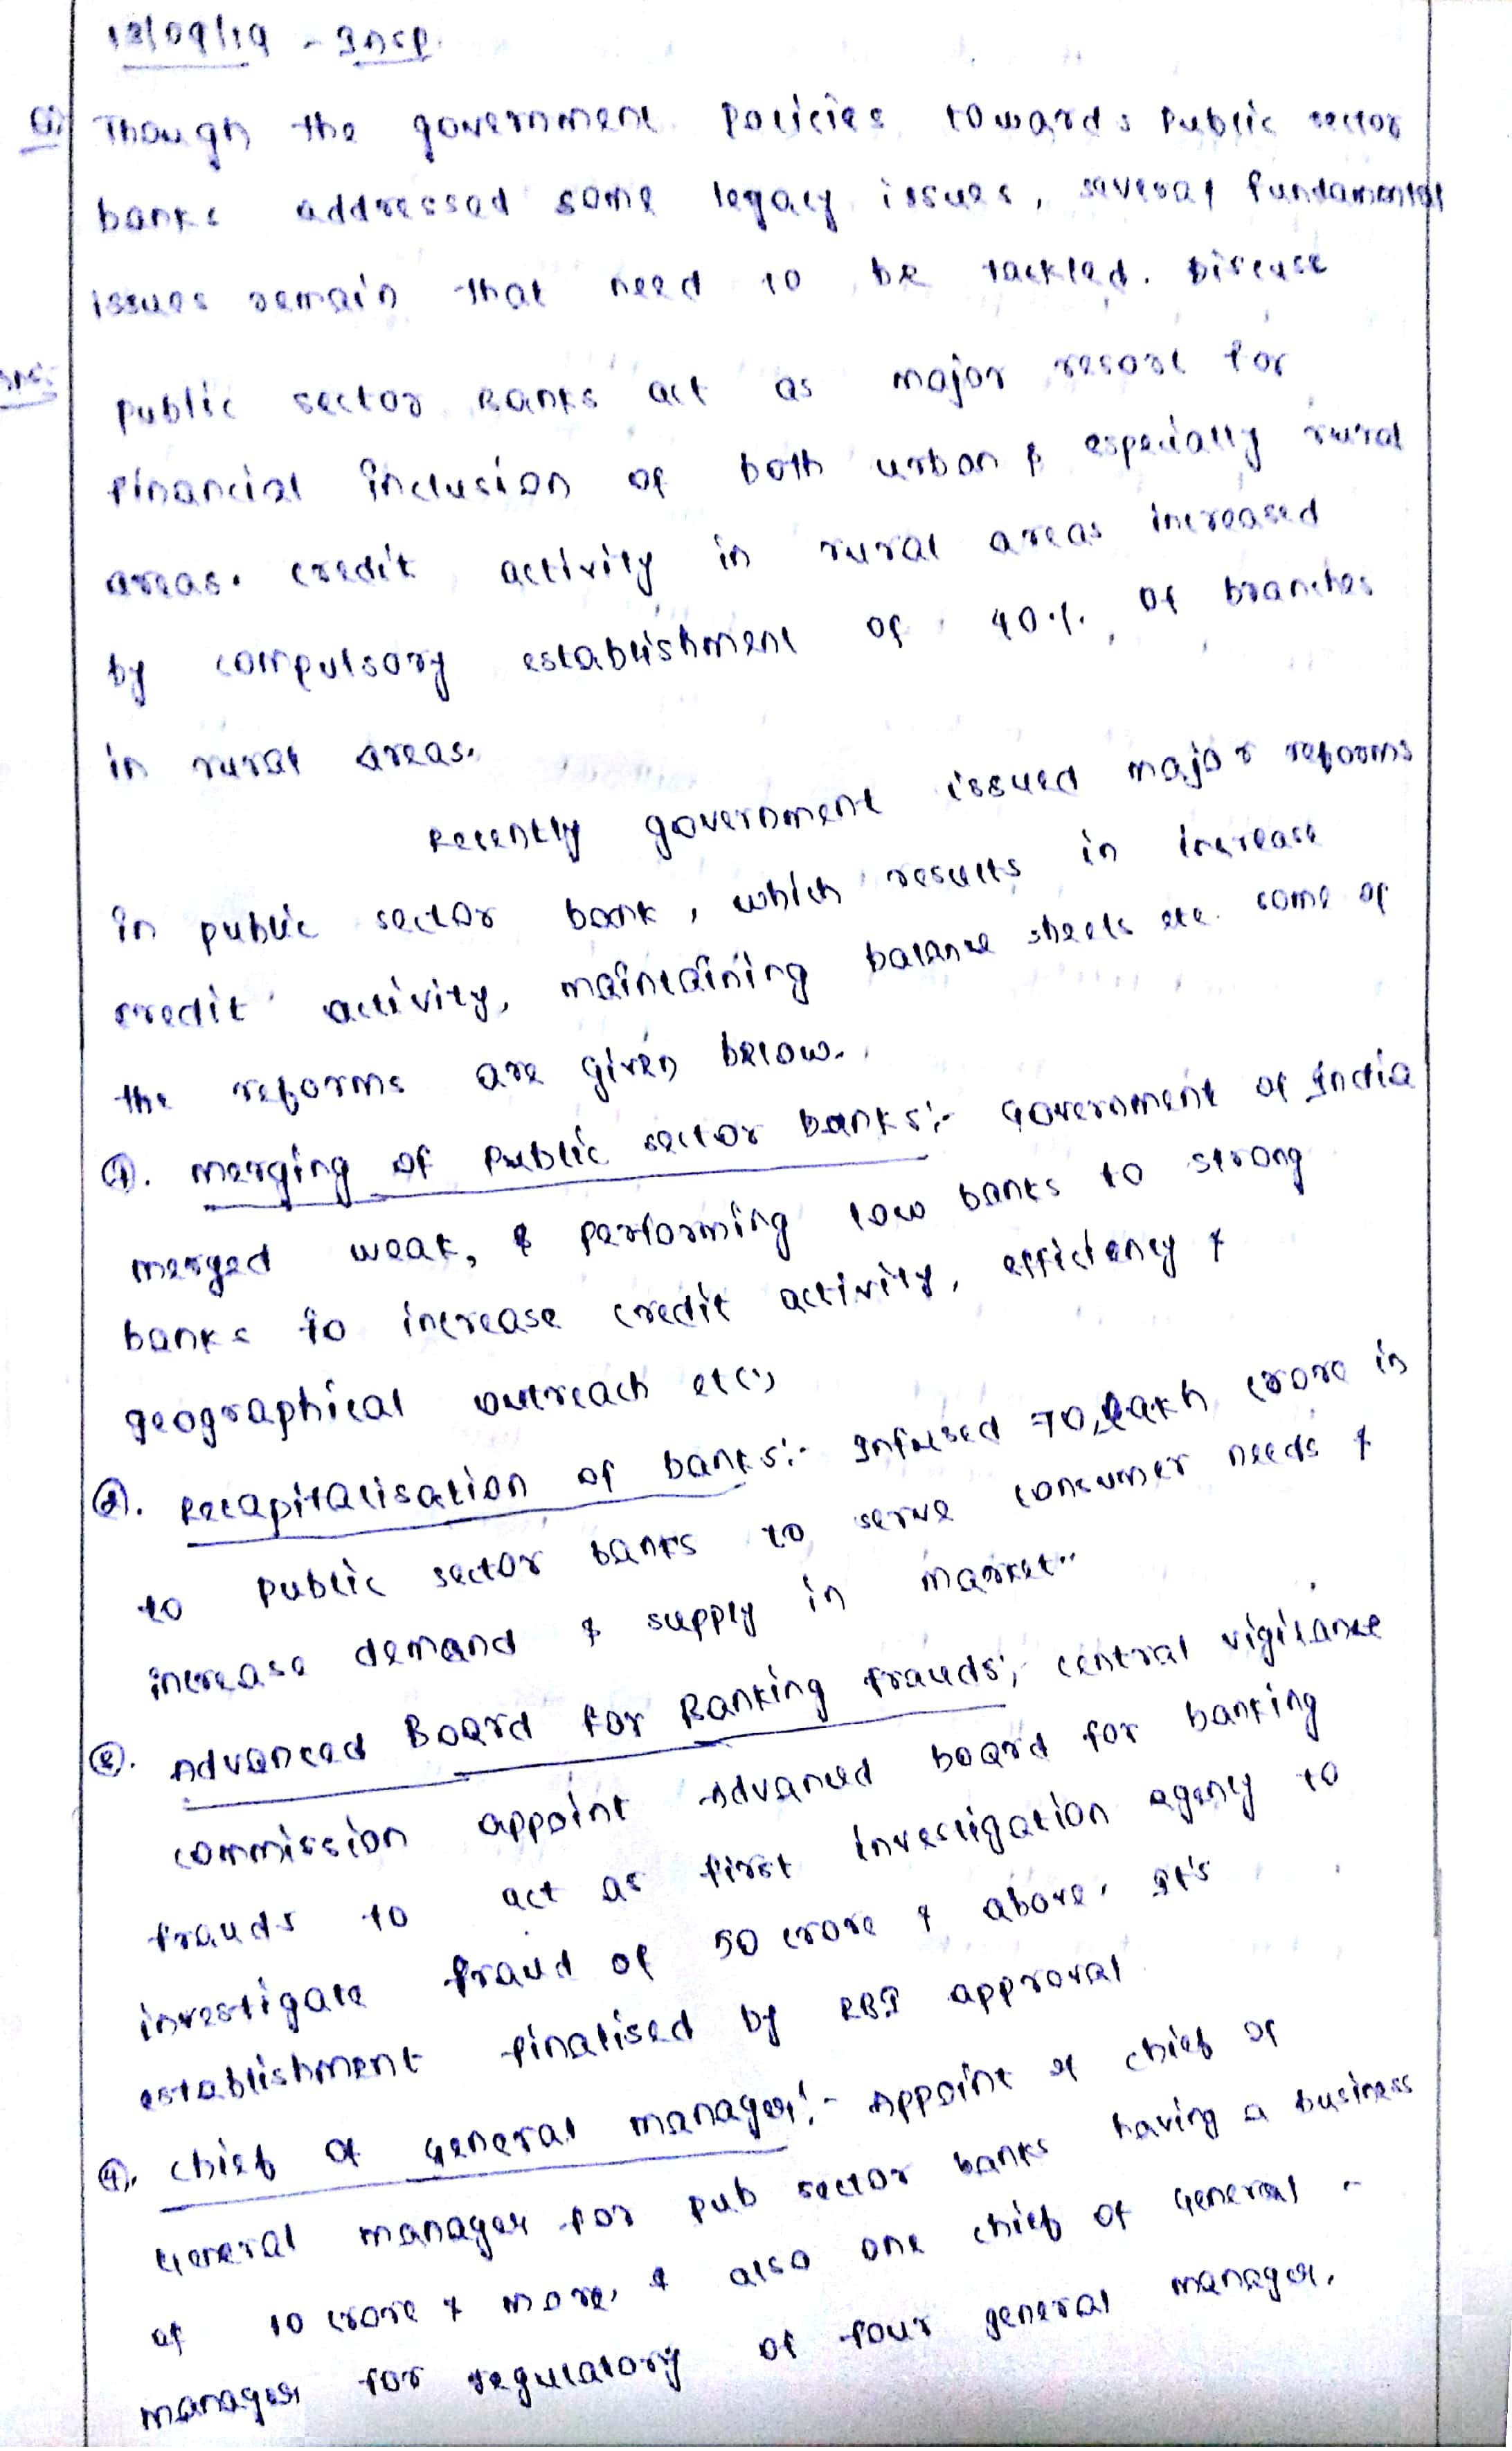 13/09/19 - Insp.
Q) Though the government policies towards Public sector
banks addressed some legacy issues, several fundamental
issues remain that need to be tackled. Discuss
Ans:- Public sector Banks act as major resort for
financial inclusion of both urban & especially rural
areas. credit activity in rural areas increased
by compulsory establishment of 40%. of branches
in rural areas.
Recently government issued major reforms
in public sector bank, which results in increase
credit activity, maintaining balance sheets etc. some of
the reforms are given below.
①. Merging of Public sector banks:- Government of India
merged weak, & performing low banks to strong
banks to increase credit activity, efficiency &
geographical outreach etc.,
②. Recapitalisation of banks:- Infused 70, Lakh crore in
to public sector banks to serve consumer needs &
increase demand & supply in market.
③. Advanced Board for Banking frauds:- central vigilance
commission appoint Advanced board for banking
frauds to act as first investigation agency to
investigate fraud of 50 crore & above. It's
establishment finalised by RBI approval
④. Chief of General manager:- Appoint of chief of
General manager for pub sector banks having a business
of 10 crore & more, & also one chief of General -
manager for regulatory of four general manager.